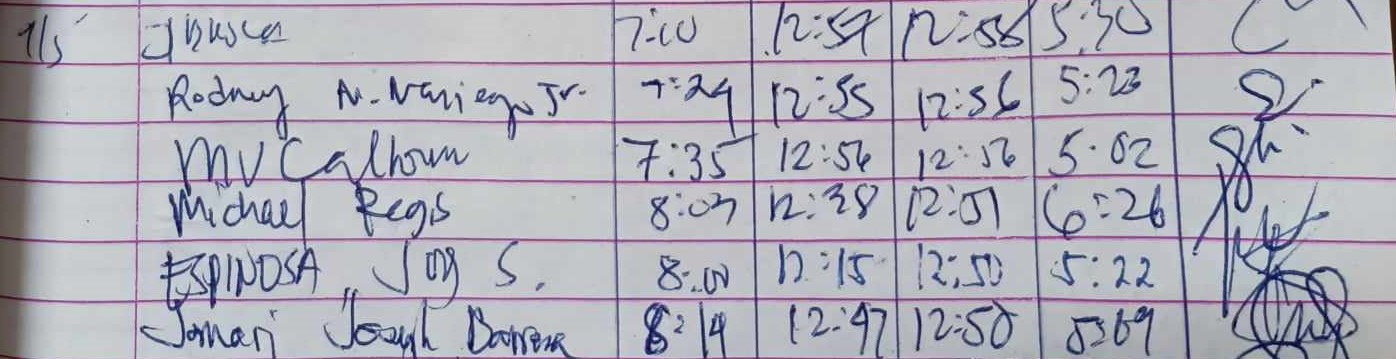 1/5 7:10 12:57 12:58 5:30
Rodney N. Jr. 7:24 12:55 12:56 5:23
MV Calhoun 7:35 12:56 12:56 5:02
Michael Regis 8:03 12:38 12:51 6:26
ESPINOSA, S. 8:00 12:15 12:50 5:22
Jomari Joseph 8:19 12:47 12:50 5:09